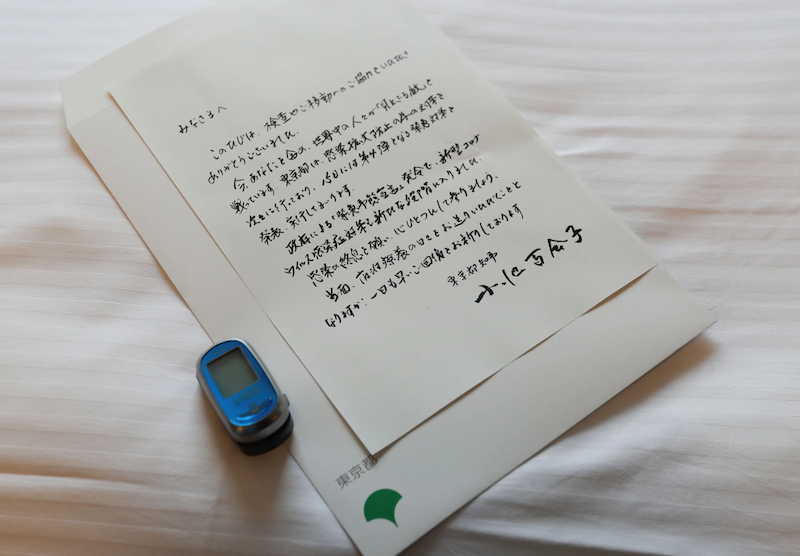 みなさまへ
このたびは、検査やご移動へのご協力をいただき
ありがとうございました。
今、あなたと会い、世界中の人々が「見えざる敵」と
戦っています。東京都は、感染拡大防止の為の対策を
次々に行っており、15日には第4弾となる緊急対策を
発表、実行してまいります。
政府による「緊急事態宣言」発令で、新型コロナ
ウイルス感染症対策も新たな段階に入りました。
感染の終息を願い、心ひとつにして参りましょう。
当面、宿泊療養の日々をお送りいただくことと
なりますが、一日も早いご回復をお祈りしております
東京都知事
小池百合子
東京都